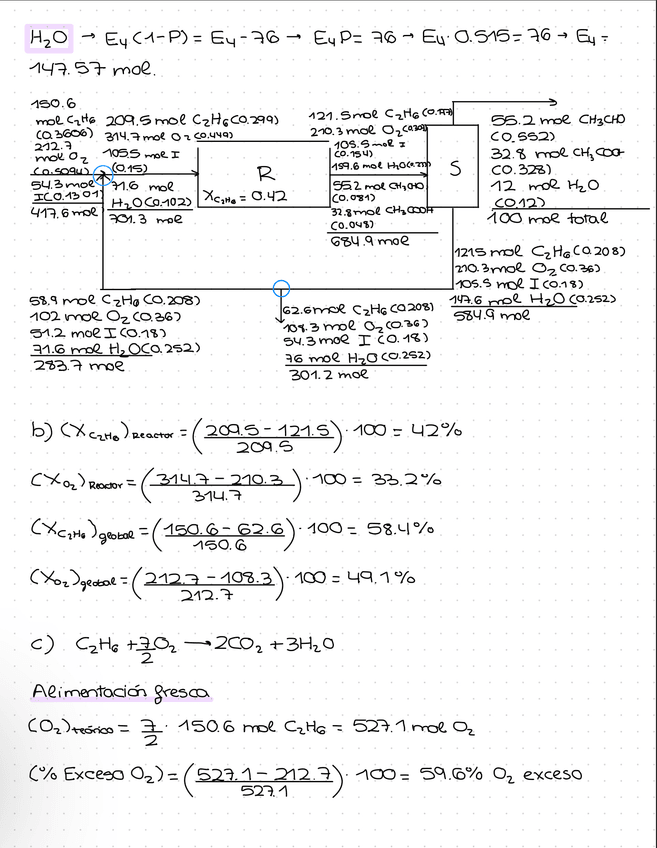 H₂O → E₄(1-P) = E₄-76 → E₄P = 76 → E₄·0.515 = 76 → E₄ =
147.57 mol.
150.6
mol C₂H₆
(0.3606)
212.7
mol O₂
(0.5094)
54.3 mol
I(0.1301)
417.6 mol
209.5 mol C₂H₆(0.299)
314.7 mol O₂(0.449)
105.5 mol I
(0.15)
71.6 mol
H₂O(0.102)
701.3 mol
R
X_C₂H₆ = 0.42
121.5 mol C₂H₆(0.177)
210.3 mol O₂
105.5 mol I
(0.154)
159.6 mol H₂O
55.2 mol CH₃CHO
(0.081)
32.8 mol CH₃COOH
(0.048)
684.9 mol
S
55.2 mol CH₃CHO
(0.552)
32.8 mol CH₃COO-
(0.328)
12 mol H₂O
(0.12)
100 mol total
1215 mol C₂H₆ (0.208)
210.3 mol O₂ (0.36)
105.5 mol I (0.18)
147.6 mol H₂O (0.252)
584.9 mol
58.9 mol C₂H₆ (0.208)
102 mol O₂ (0.36)
51.2 mol I (0.18)
71.6 mol H₂O(0.252)
283.7 mol
62.6 mol C₂H₆ (0.208)
108.3 mol O₂ (0.36)
54.3 mol I (0.18)
76 mol H₂O (0.252)
301.2 mol
b) (X_C₂H₆)Reactor = (209.5 - 121.5 / 209.5) · 100 = 42%
(X_O₂)Reactor = (314.7 - 210.3 / 314.7) · 100 = 33.2%
(X_C₂H₆)global = (150.6 - 62.6 / 150.6) · 100 = 58.4%
(X_O₂)global = (212.7 - 108.3 / 212.7) · 100 = 49.1%
c) C₂H₆ + 7/2 O₂ → 2CO₂ + 3H₂O
Alimentación fresca
(O₂)teórico = 7/2 · 150.6 mol C₂H₆ = 527.1 mol O₂
(% Exceso O₂) = (527.1 - 212.7 / 527.1) · 100 = 59.6% O₂ exceso